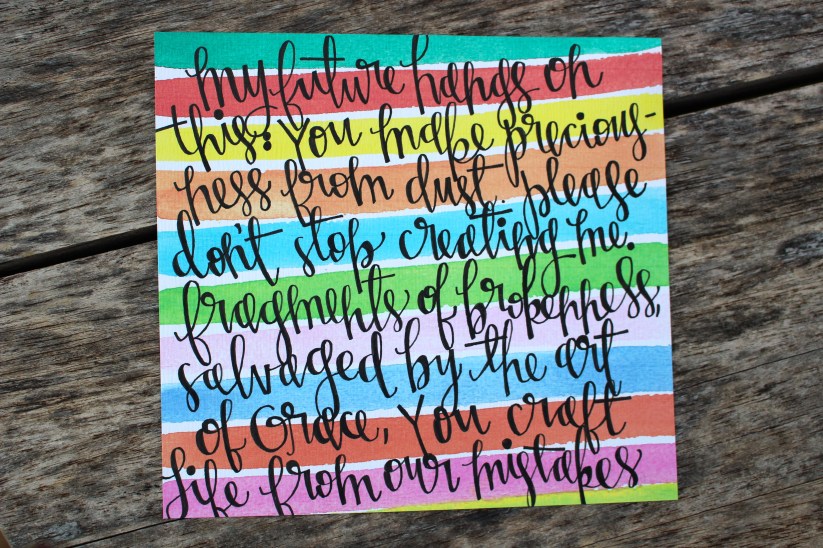 my future hangs on
this: You make precious-
ness from dust. please
don't stop creating me.
fragments of brokenness,
salvaged by the art
of Grace, You craft
life from our mistakes